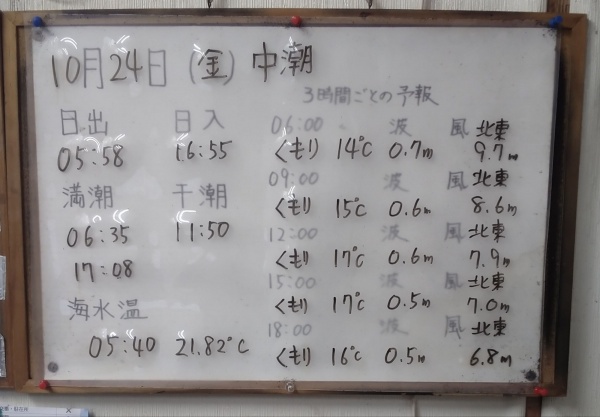 10月24日 (金) 中潮
日出 日入
05:58 16:55
満潮 干潮
06:35 11:50
17:08
海水温
05:40 21.82℃
3時間ごとの予報
06:00 波 風 北東
くもり 14℃ 0.7m 9.7m
09:00 波 風 北東
くもり 15℃ 0.6m 8.6m
12:00 波 風 北東
くもり 17℃ 0.6m 7.9m
15:00 波 風 北東
くもり 17℃ 0.5m 7.0m
18:00 波 風 北東
くもり 16℃ 0.5m 6.8m